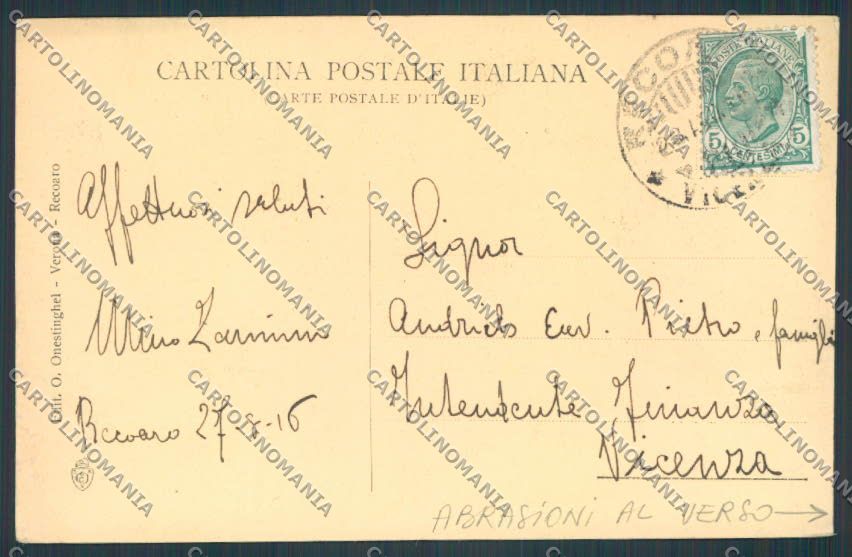 CARTOLINA POSTALE ITALIANA
(CARTE POSTALE D'ITALIE)
POSTE ITALIANE
5 CENTESIMI 5
Affettuosi saluti
Recoaro 27-8-16
Signor
Cav. Pietro e famiglia
Intendente Finanza
Vicenza
Edit. O. Onestinghel - Verona - Recoaro
ABRASIONI AL VERSO →
CARTOLINOMANIA